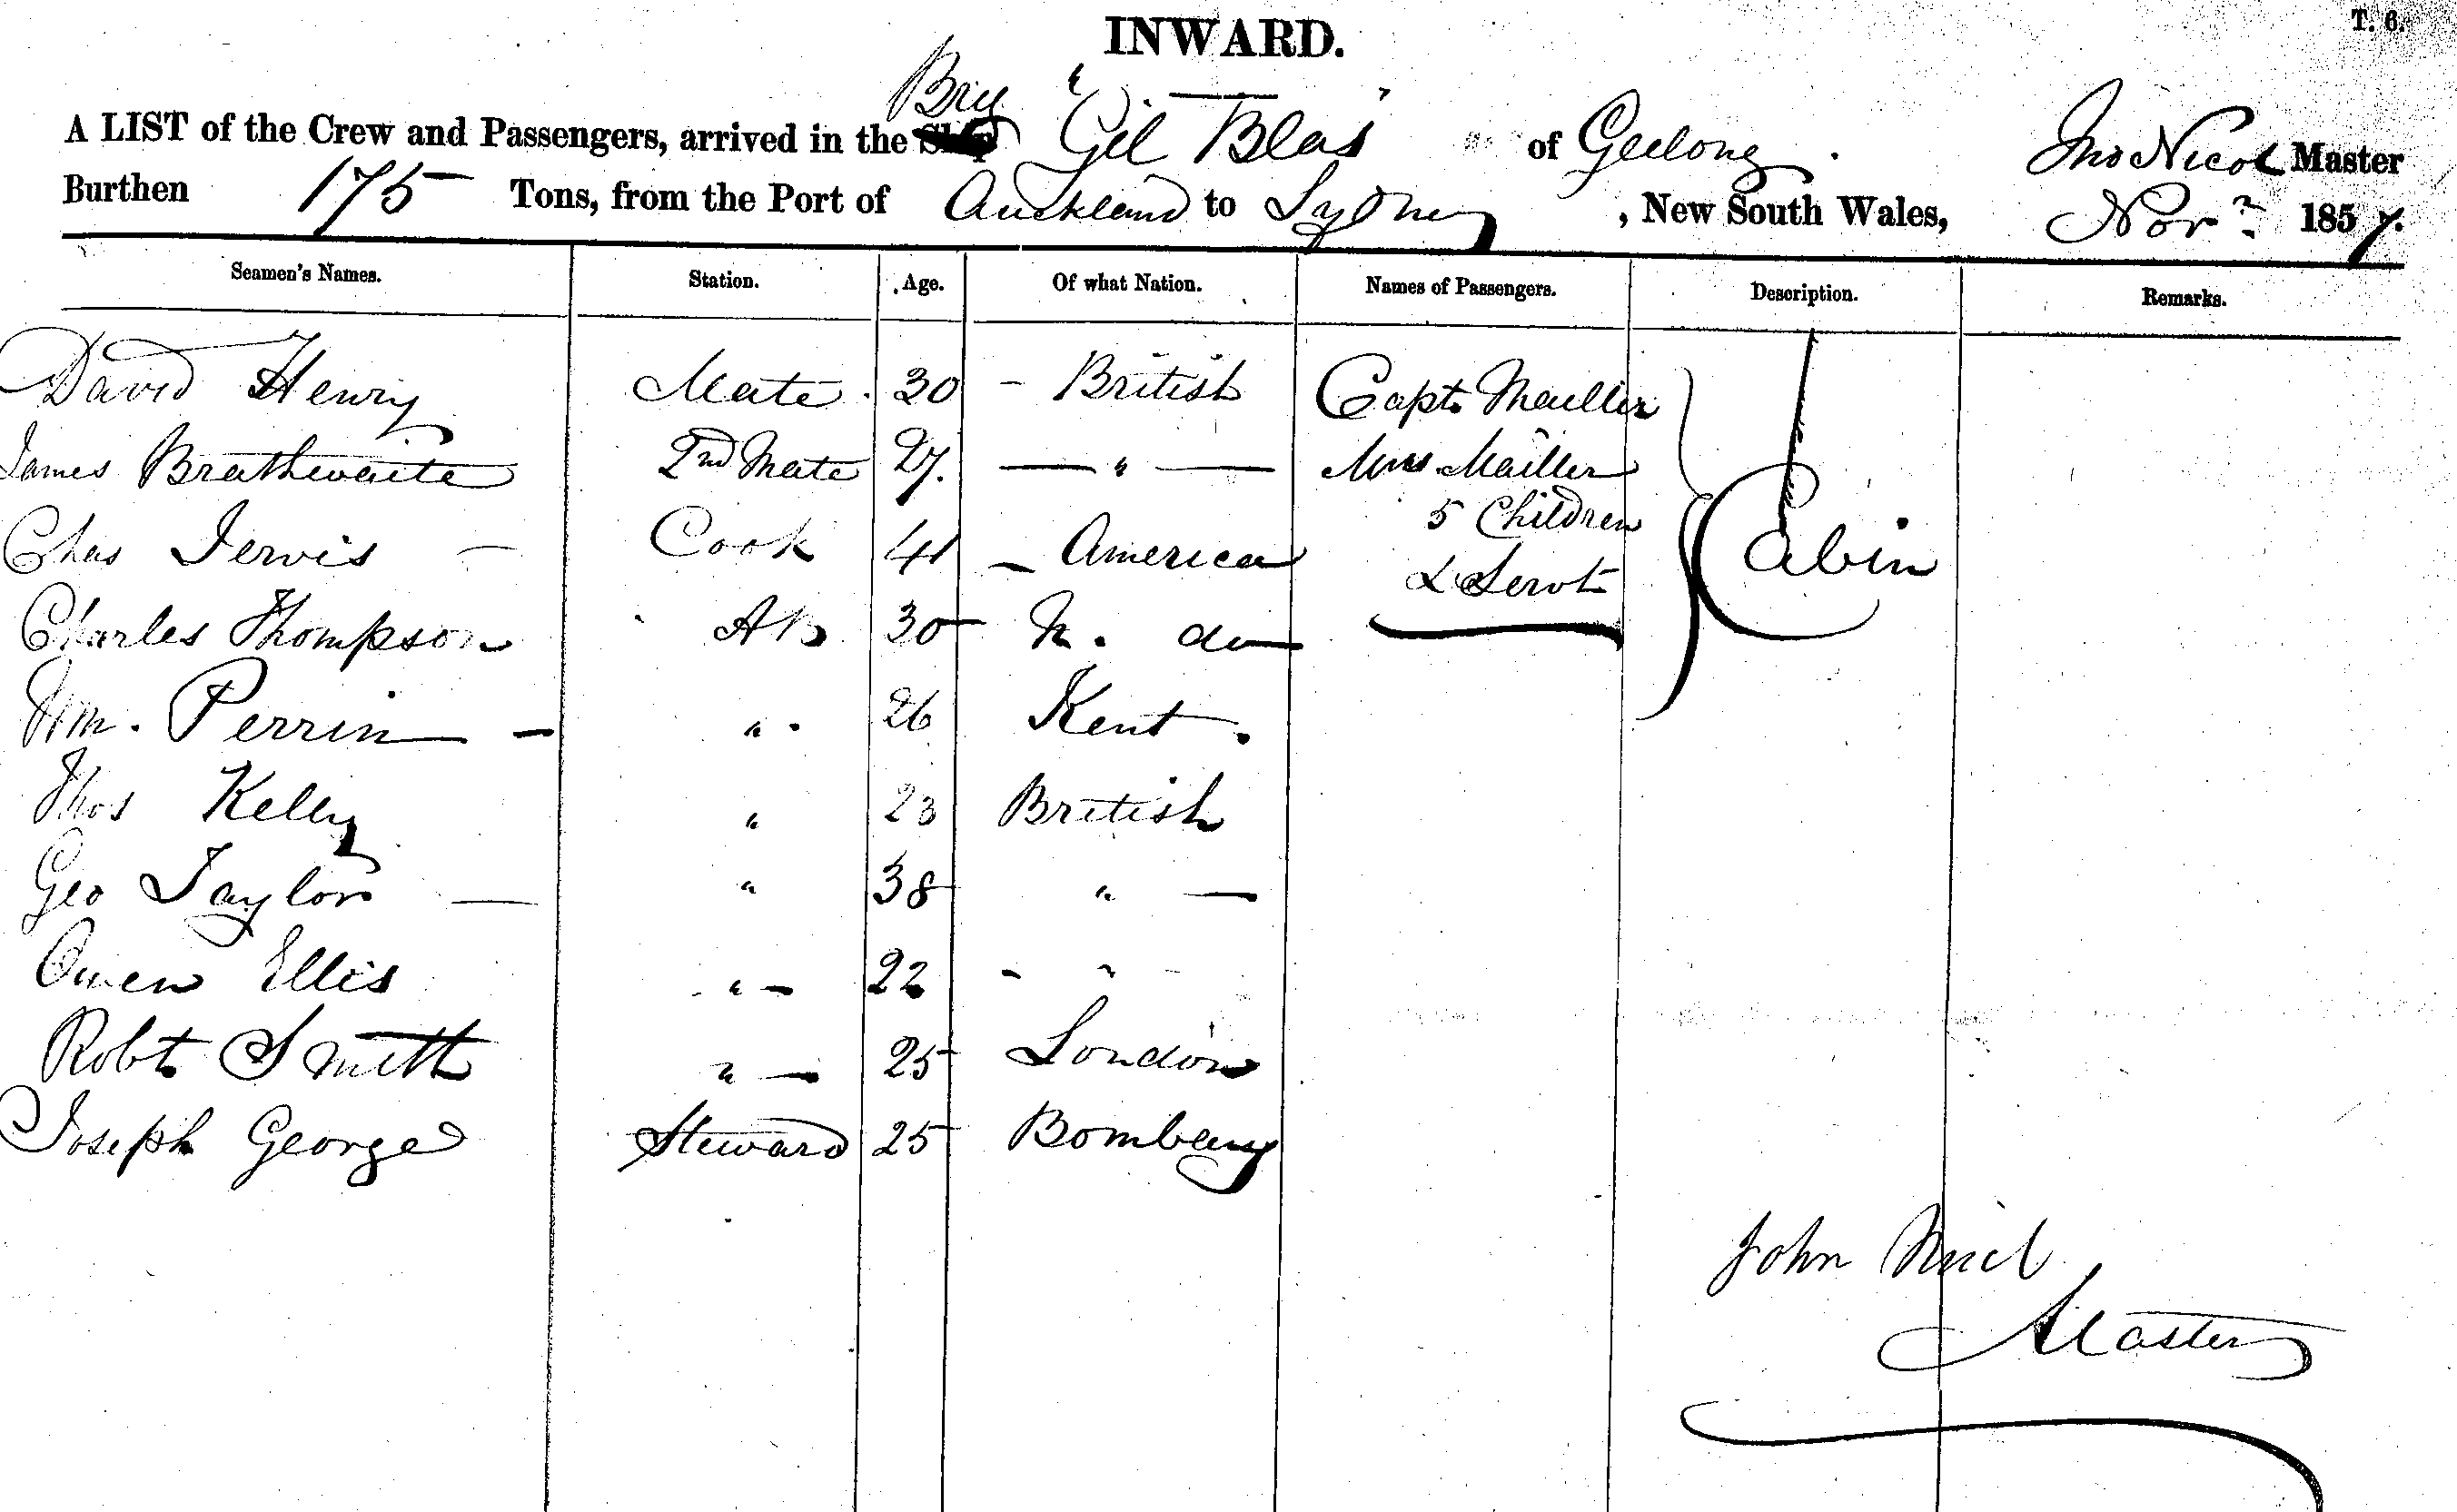 INWARD.
T. 6.
Brig
A LIST of the Crew and Passengers, arrived in the Ship "Gil Blas" of Geelong. Jno Nicol Master
Burthen 175 Tons, from the Port of Auckland to Sydney, New South Wales, Novr 1857.
Seamen's Names. Station. Age. Of what Nation. Names of Passengers. Description. Remarks.
David Henry Mate. 30 - British Capt. Mailler
James Brathwaite 2nd Mate 27. — " — Mrs Mailler
5 Children
Chas Jervis — Cook 41 - America & Servt Cabin
Charles Thompson AB 30 N. do
Wm. Perrin — " . 26 Kent.
Thos Kelly " 23 British
Geo Taylor — " 38 " —
Owen Ellis " - 22 - "
Robt. Smith " — 25 London
Joseph George Steward 25 Bombay
John Nicol
Master